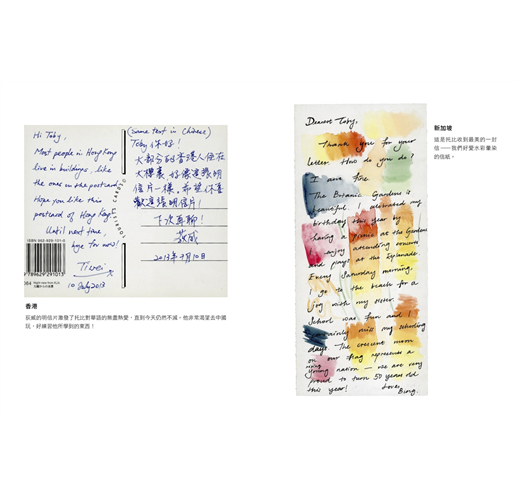 Hi Toby,
Most people in Hong Kong
live in buildings, like
the one in the postcard.
Hope you like this
postcard of Hong Kong
Until next time,
bye for now!
Tiwei
10 July 2013
(Same text in Chinese)
Toby 你好!
大部分的香港人住在
大樓裏 好像這張明
信片一樣。希望你喜
歡這張明信片!
下次再聊!
荻威
2013年7月10日
TOURISTS CARDS
9 789629 291013
香港
荻威的明信片激發了托比對華語的無盡熱愛,直到今天仍然不減。他非常渴望去中國
玩,好練習他所學到的東西!
Dearest Toby,
Thank you for your
letter. How do you do?
I am fine.
The Botanic Gardens is
beautiful. I celebrated my
birthday this year by
having a picnic at the Gardens
I enjoy attending concerts
and plays at the Esplanade.
Every Saturday morning,
I go to the beach for a
jog with my sister.
School was fun and I
certainly miss my schooling
days. The crescent moon
on our flag represents a
rising young nation — we are very
proud to turn 50 years old
this year!
Love,
Bing
新加坡
這是托比收到最美的一封
信——我們好愛水彩暈染
的信紙。